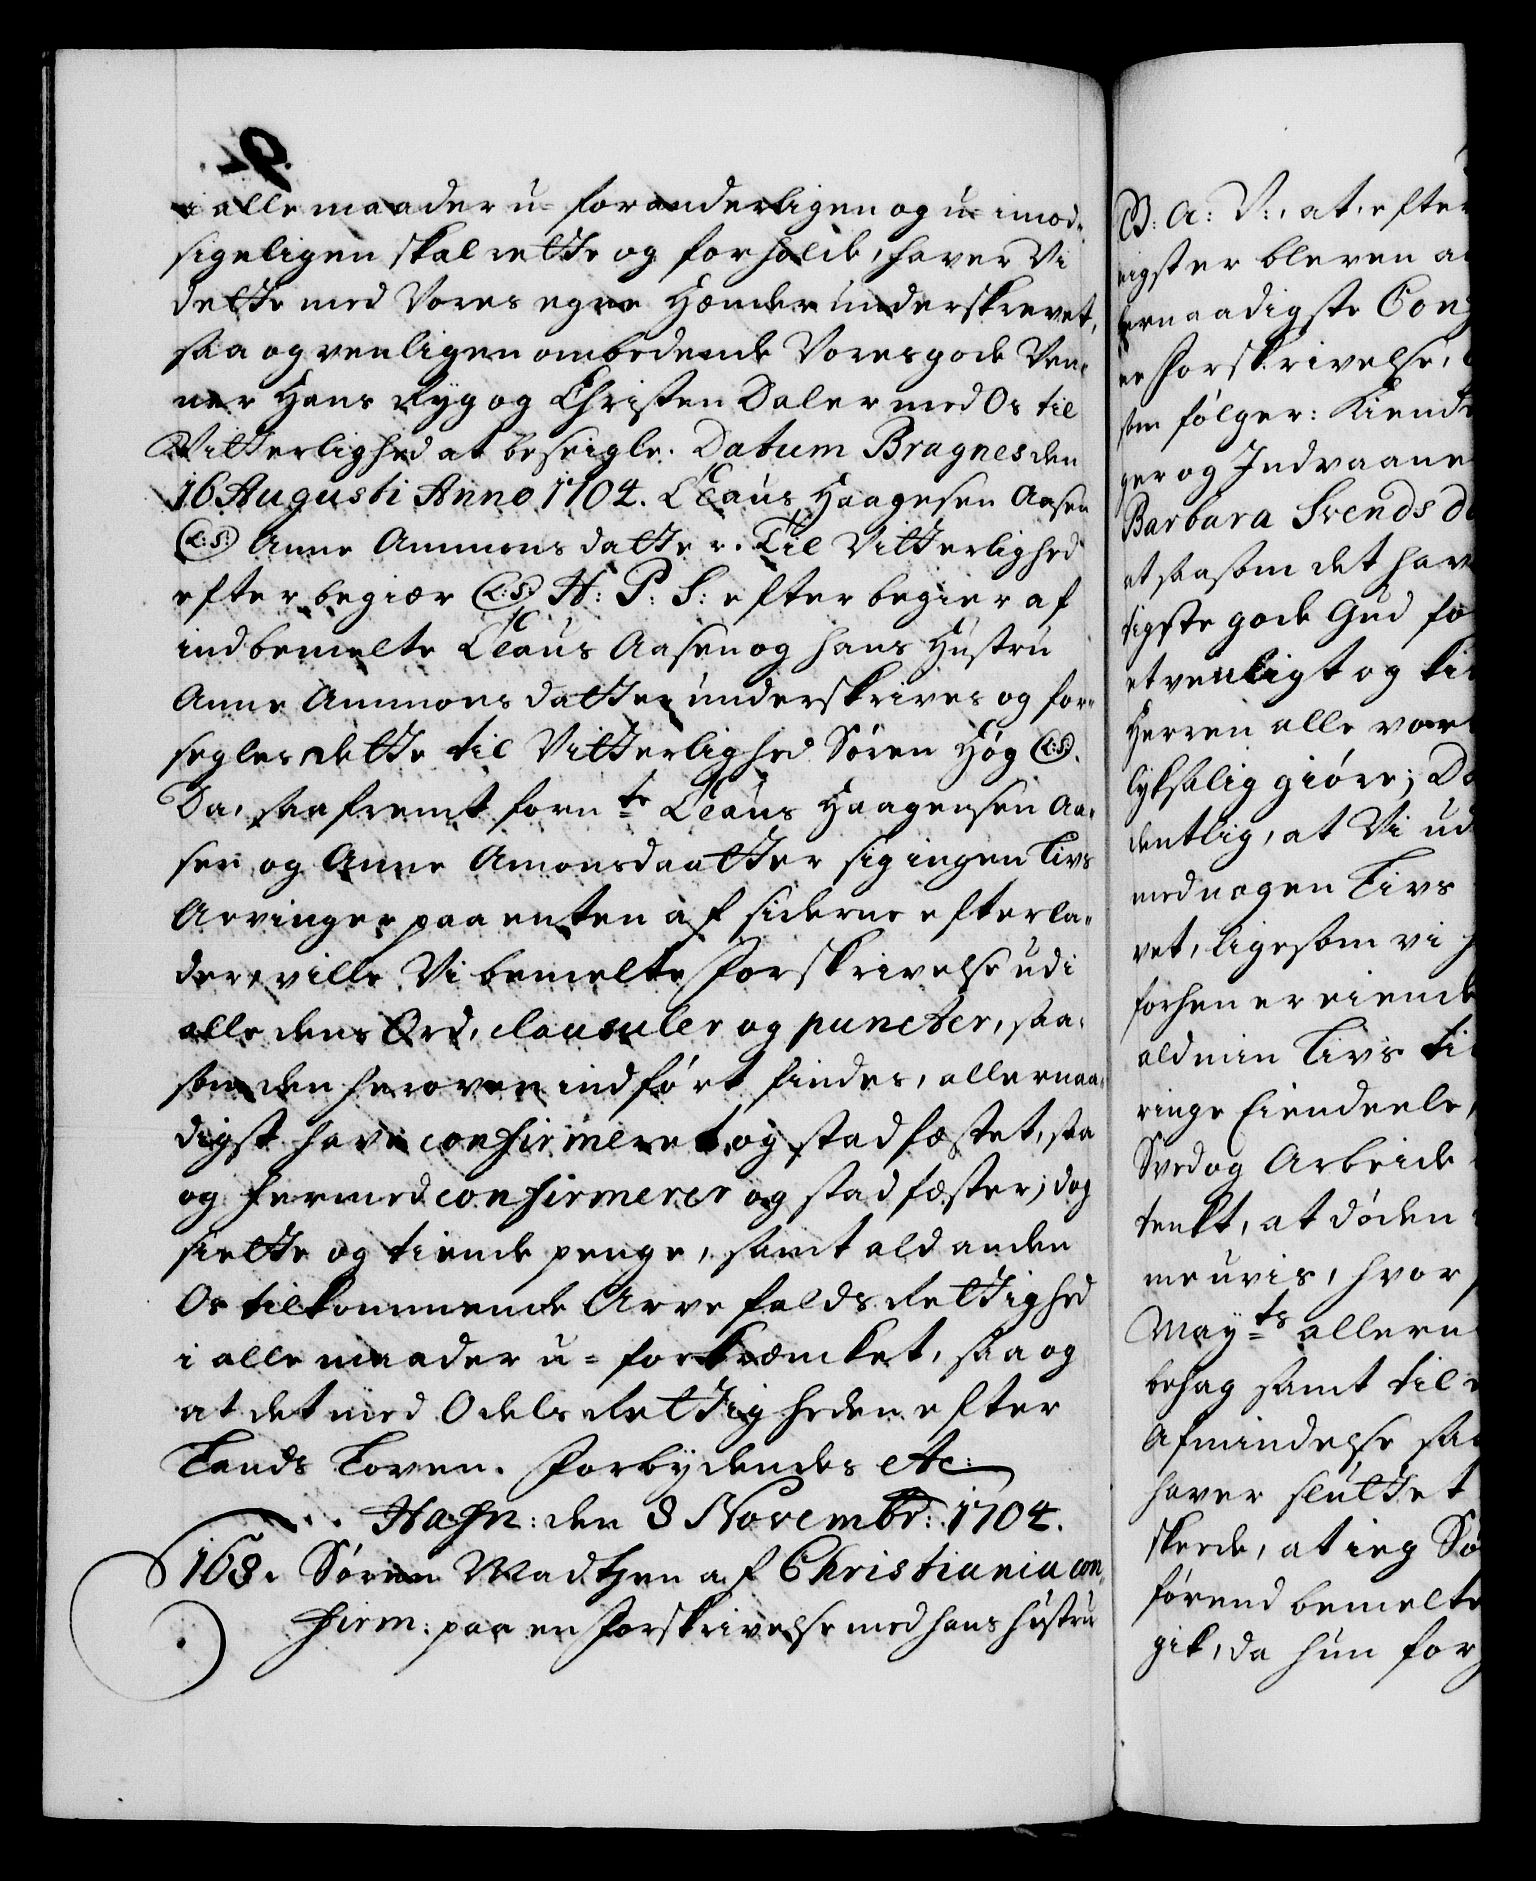 i alle maader u-foranderligen og u-imod-
sigeligen skal rette og forholde, haver Vi
dette med Vores egne Hænder underskrevet,
saa og venligen ombedende Vores gode Ven-
ner Hans Ryg og Christen Daler med Os til
Vitterlighed at beseigle. Datum Bragnes den
16 Augusti Anno 1704. Claus Haagesen Aasen
(L:S:) Anne Ammons datter. Til Vitterlighed
efter begiær (L:S:) H: P: S: efter begier af
indbemelte Claus Aasen og hans Hustru
Anne Ammons datter underskrives og for-
segles dette til Vitterlighed Sören Høg (L:S:)
Da, saafremt forn:te Claus Haagensen Aa-
sen og Anne Amonsdaatter sig ingen Livs
Arvinger paa enten af siderne efterla-
der, ville Vi bemelte Forskrivelse udi
alle dens Ord, clausuler og puncter, saa-
som den heroven indført findes, allernaa-
digst have confirmeret og stadfæstet, saa
og hermed confirmerer og stadfæster; dog
siette og tiende penge, samt ald anden
Os tilkommende Arvefalds Rettighed
i alle maader u-forkræncket, saa og
at det med Odels Rettigheden efter
Lands Loven. Forbydendes etc:
Hafn: den 8 Novembr: 1704.
168. Søren Madtzen af Christiania con-
firm: paa en Forskrivelse med hans hustru
G: A: V:, at, efter
nigster bleven a
lernaadigste Con
ne Forskrivelse,
som følger: Kiend
ger og Indvaane
Barbara Svends d
at saasom det hav
tigste gode Gud fo
et venligt og ki
Herren alle vor
lyksalig giöre; D
dentlig, at Vi ud
med nogen Livs
vet, ligesom vi h
forhen er eiende
ald min Livs ti
ringe Eiendeele,
Sved og Arbeide
tenkt, at döden
me uvis, hvor
May:ts allern
behag samt til
Afmindelse saa
haver sluttet
skede, at ieg Sø
førend bemelte
gik, da hun for